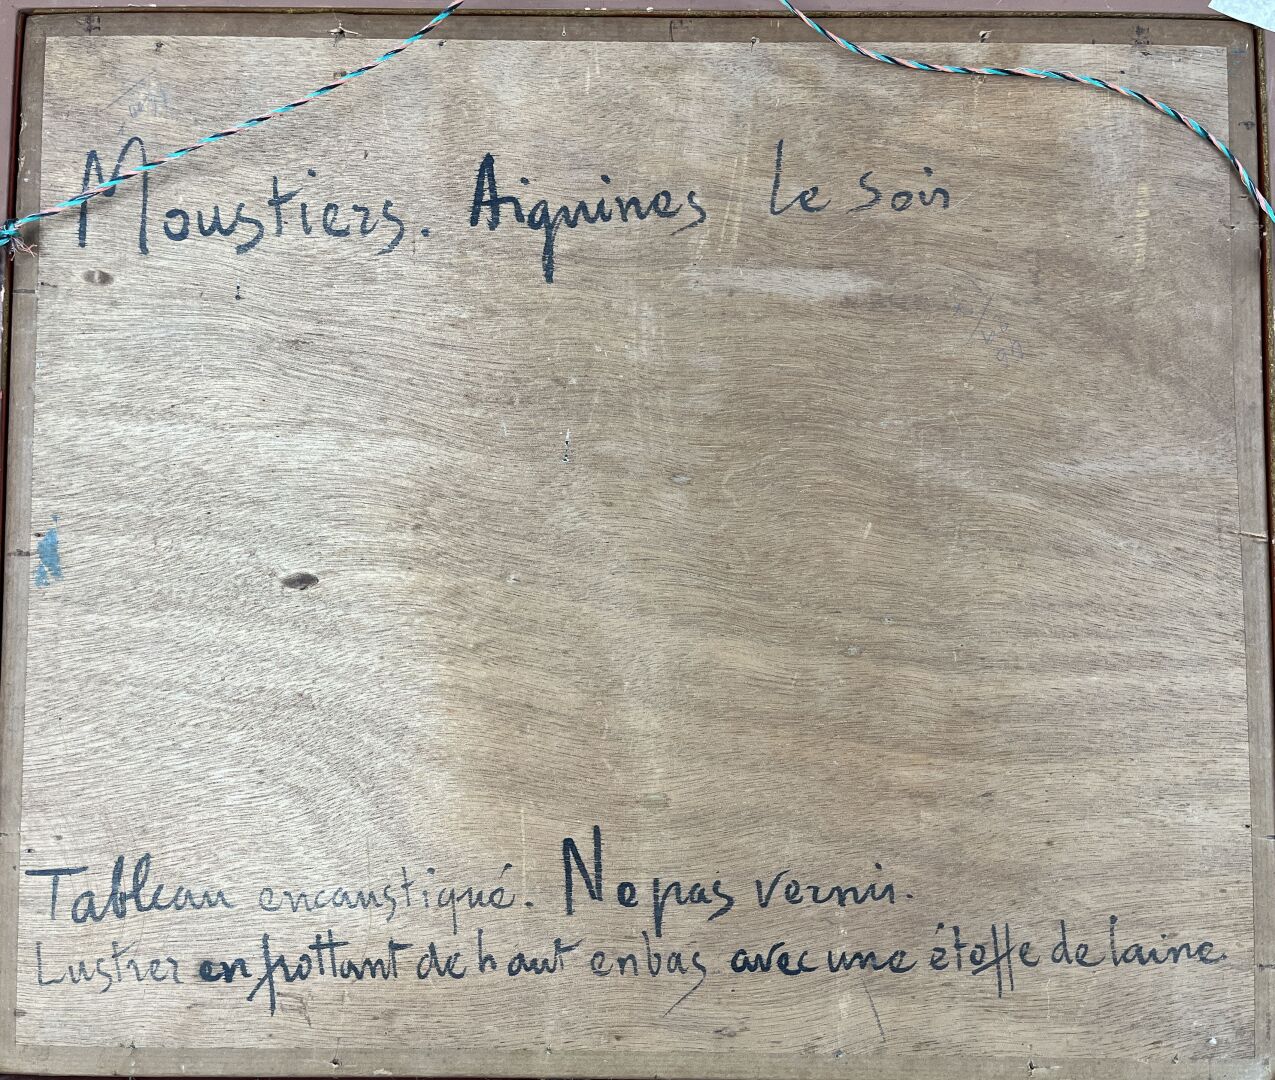 Moustiers. Aiguines le soir
Tableau encaustiqué. Ne pas vernir.
Lustrer en frottant de haut en bas avec une étoffe de laine.